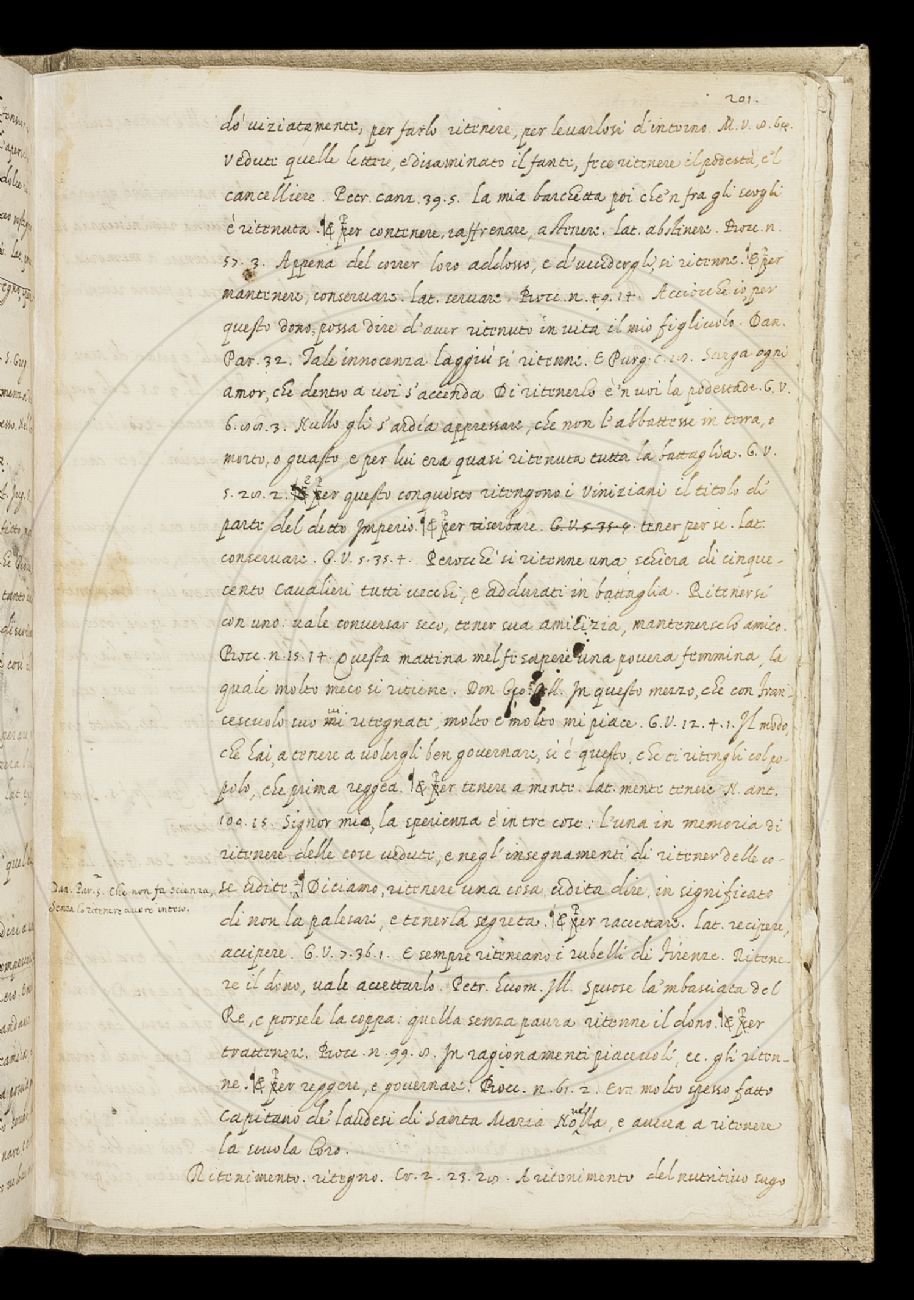 201.
do viziatamente, per farlo ritenere, per levarlosi d'intorno. M. V. 8. 60.
Vedute quelle lettere, e disaminato il fante, fece ritenere il podestà, e'l
cancelliere. Petr. canz. 39. 5. La mia barchetta poi che'n fra gli scogli
è ritenuta. ¶ & Per contenere, raffrenare, astenere. lat. abstinere. Bocc. n.
57. 3. Appena del correr loro addosso, e d'uccidergli, si ritenne. ¶ & Per
mantenere, conservare. lat. servare. Bocc. n. 49. 14. Acciocchè io per
questo dono, possa dire d'aver ritenuto in vita il mio figliuolo. Dan.
Par. 32. Tale innocenza laggiù si ritenne. E Purg. c. 18. Surga ogni
amor, che dentro a voi s'accenda Di ritenerlo è'n voi la podestade. G. V.
6. 3. Nullo gli s'ardía appressare, che non l'abbattesse in terra, o
morto, o guasto e per lui era quasi ritenuta tutta la battaglia. G. V.
5. 28. 2. Per questo conquisto ritengono i Viniziani il titolo di
parte del detto Imperio. ¶ & Per riserbare. G. V. 5. 35. 4. tener per se. lat.
conservare. G. V. 5. 35. 4. Perocchè si ritenne una schiera di cinque-
cento Cavalieri tutti vecchi, e addurati in battaglia. Ritenersi
con uno: vale conversar seco, tener sua amicizia, mantenerselo amico.
Bocc. n. 15. 14. Questa mattina mel fe sapere una povera femmina, la
quale molto meco si ritiene. Don Gio: Cell. In questo mezzo, che con Fran-
cescuolo suo vi ritegnate, molto e molto mi piace. G. V. 12. 4. 1. Il modo,
che hai, a tenere a volergli ben governare, si è questo, che ti ritenghi col po-
polo, che prima reggea. ¶ & Per tenere a mente. lat. mente tenere N. ant.
100. 15. Signor mio, la sperienza è in tre cose: l'una in memoria di
ritenere delle cose vedute, e negl'insegnamenti di ritener delle co-
Dan. Par. 5. Che non fa scienza,
Senza lo ritenere avere inteso.
se udite. ¶ Diciamo, ritenere una cosa udita dire, in significato
di non la palesare, e tenerla segreta. ¶ & Per raccettare. lat. recipere,
accipere. G. V. 7. 36. 1. E sempre riteneano i rubelli di Firenze. Ritene-
re il dono, vale accettarlo. Petr. Huom. Ill. Spuose la'mbasciata del
Re, e porsele la coppa: quella senza paura ritenne il dono. ¶ & Per
trattenere. Bocc. n. 99. 8. In ragionamenti piacevoli, ec. gli riten-
ne. ¶ & Per reggere, e governare. Bocc. n. 61. 2. Era molto spesso fatto
Capitano de' laudesi di Santa Maria Novella, e aveva a ritenere
la scuola loro.
Ritenimento. ritegno. Cr. 2. 23. 28. A ritenimento del nutritivo sugo